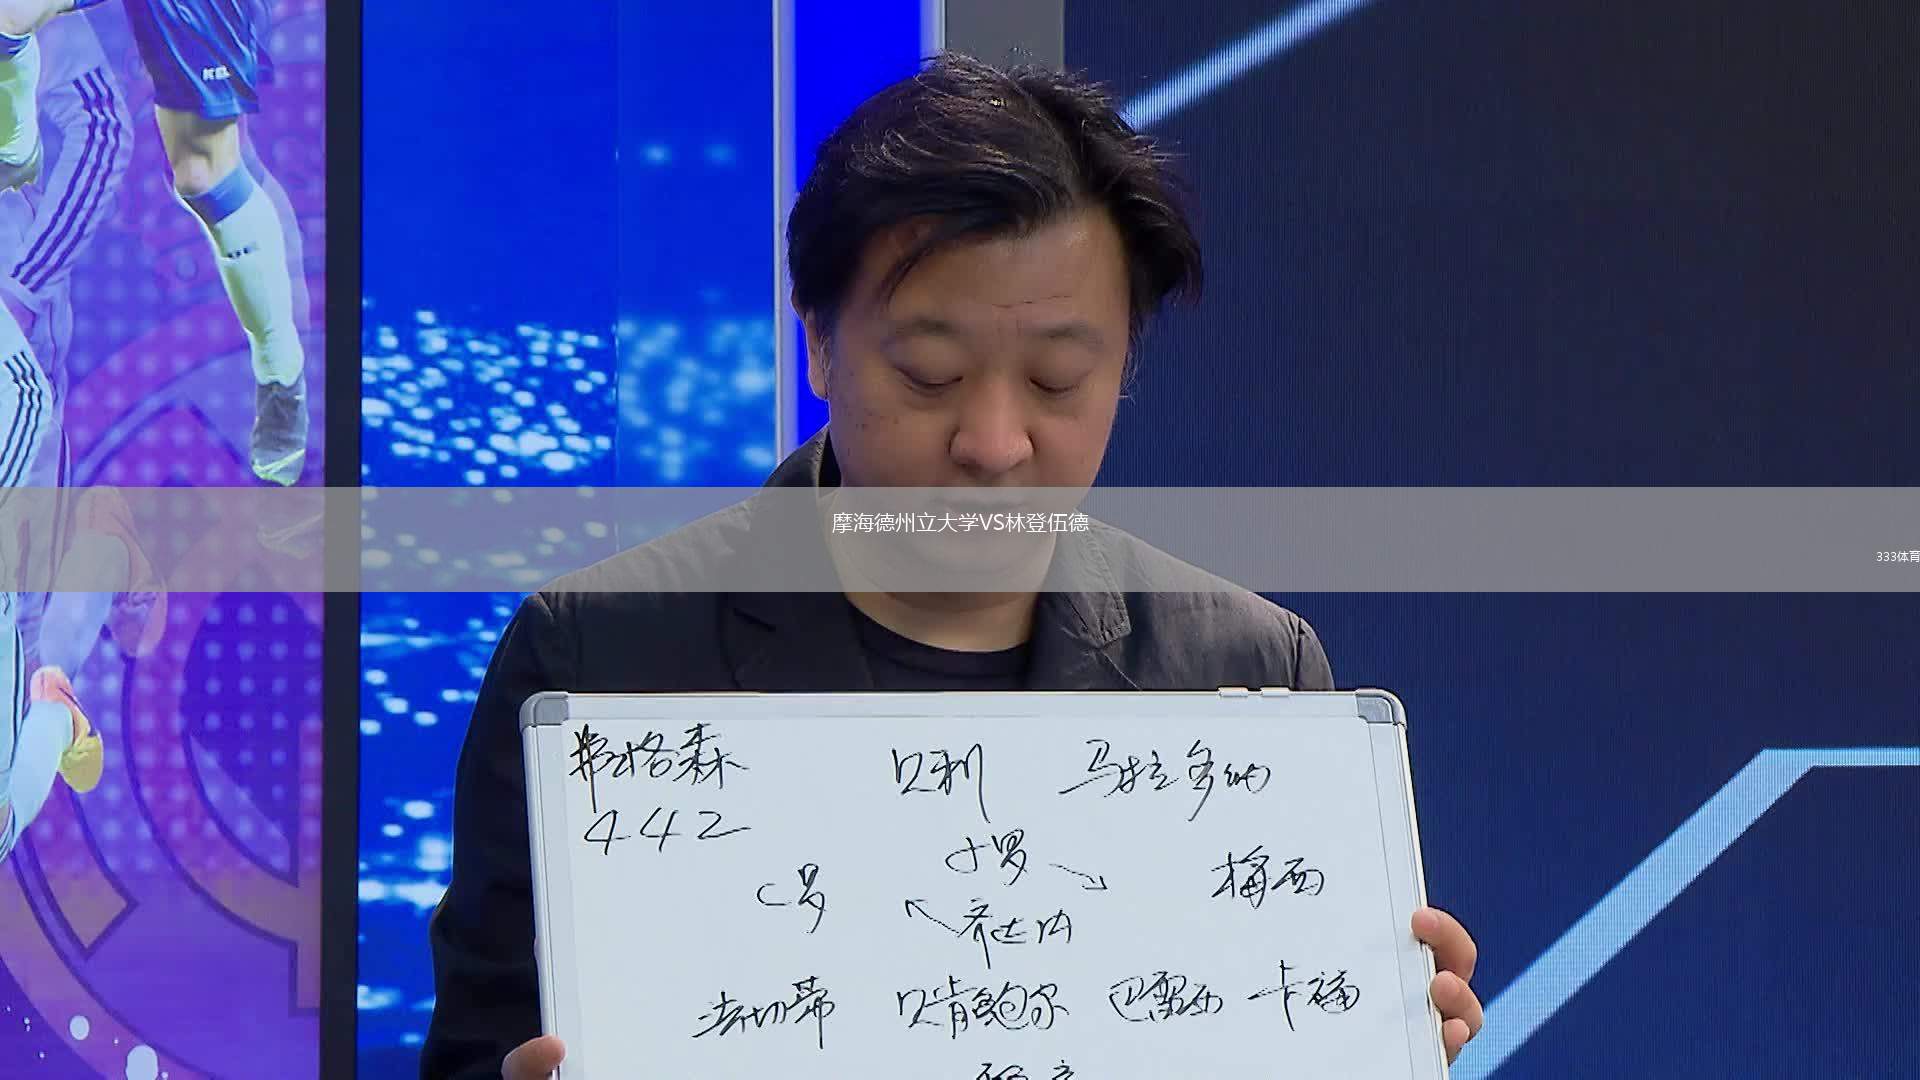 KEL
摩海德州立大学VS林登伍德
333体育
弗格森 贝利 马拉多纳
442
小罗
C罗 梅西
齐达内
法切蒂 贝肯鲍尔 巴雷西 卡福